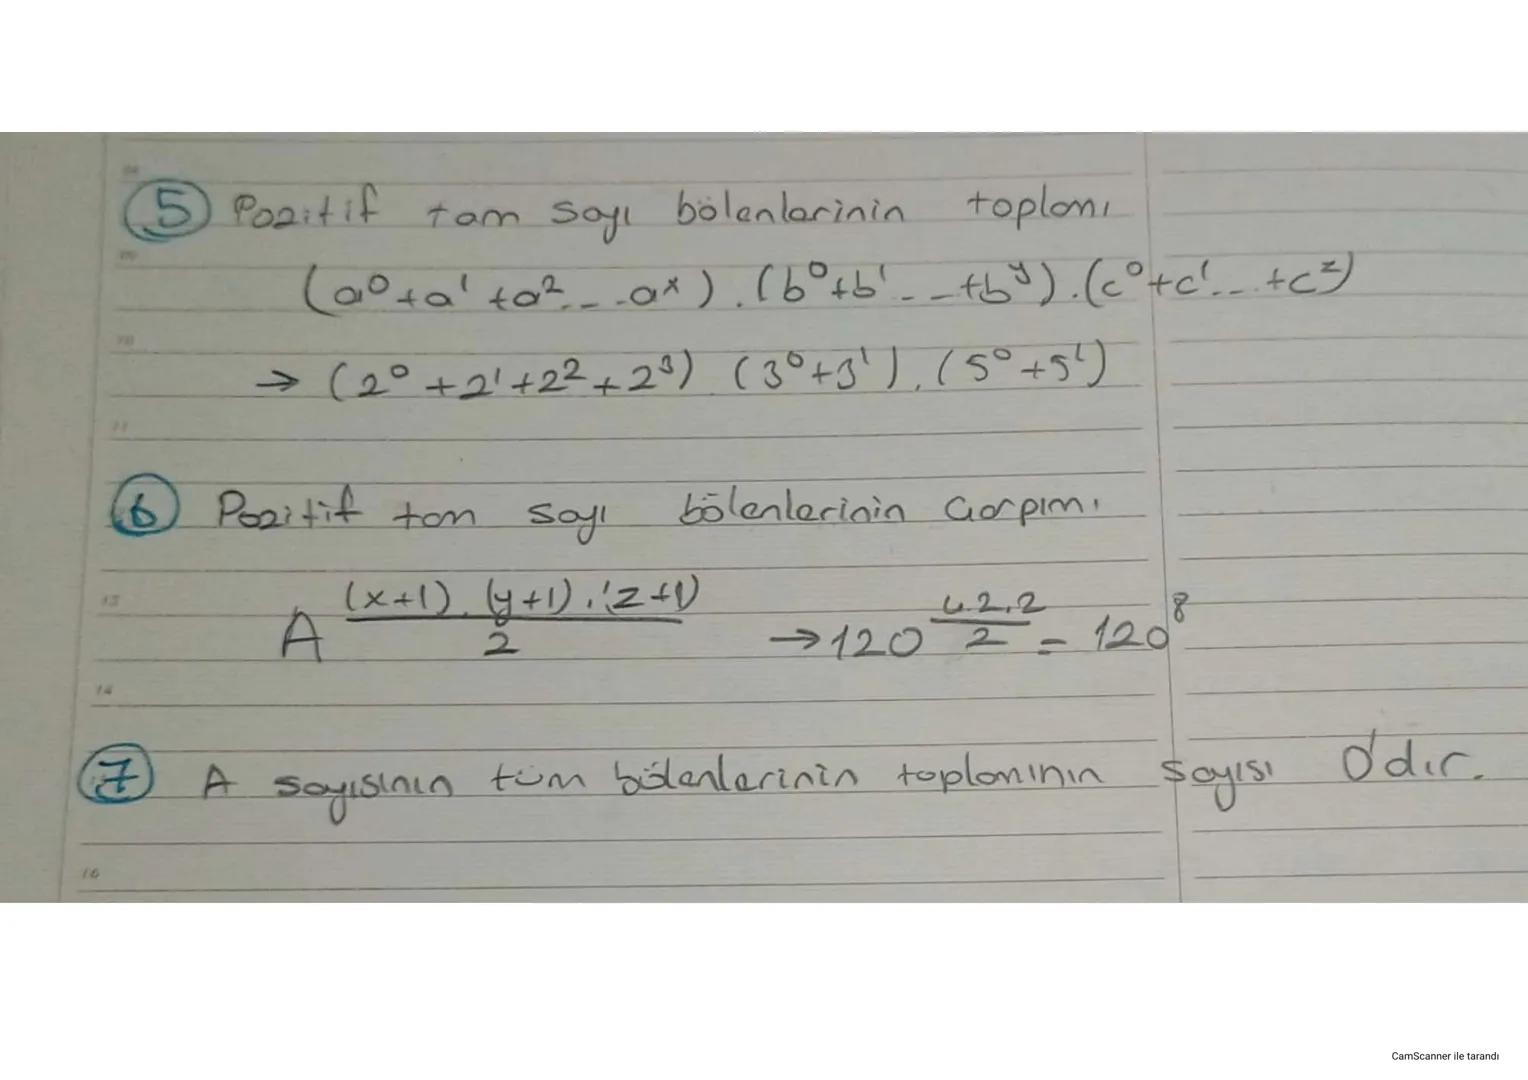 5 Pozitif tam sayı bölenlerinin toplamı
(a⁰+a¹+a²...aˣ).(b⁰+b¹...+bʸ).(c⁰+c¹...+cᶻ)
→ (2⁰+2¹+2²+2³) (3⁰+3¹).(5⁰+5¹)
6 Pozitif tam sayı bölenlerinin Çarpımı
A^((x+1).(y+1).(z+1)/2) → 120^(4.2.2/2) = 120⁸
7 A sayısının tüm bölenlerinin toplamının sayısı 0'dır.
CamScanner ile tarandı